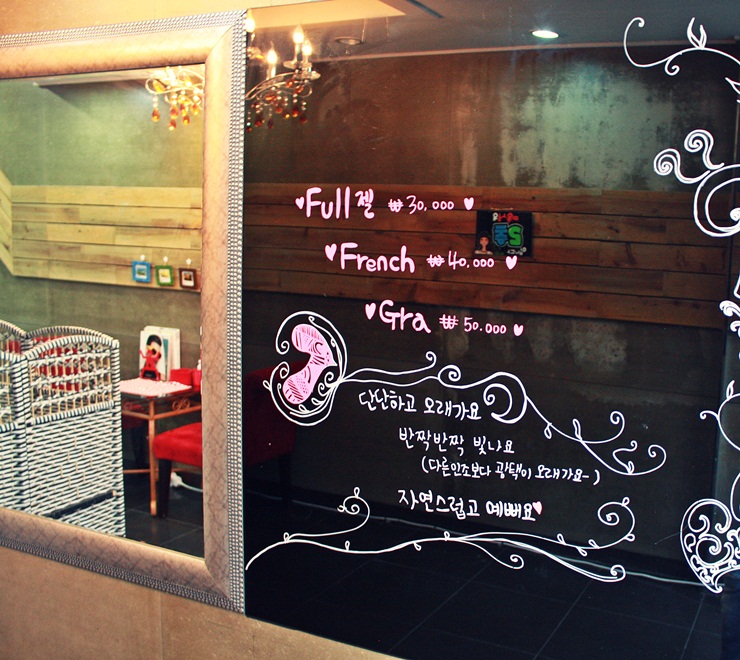 ♥Full젤 ₩30,000 ♥
♥French ₩40,000 ♥
♥Gra ₩50,000 ♥
단단하고 오래가요
반짝반짝 빛나요
(다른인조보다 광택이 오래가요~)
자연스럽고 예뻐요♥